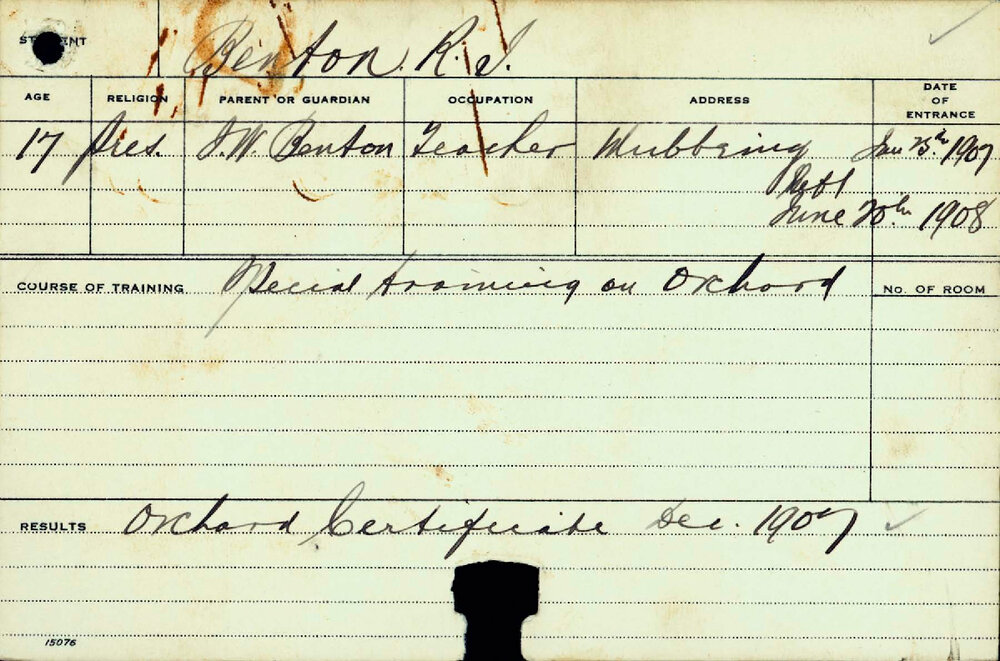 STUDENT Benton. R. S.
AGE RELIGION PARENT OR GUARDIAN OCCUPATION ADDRESS DATE OF ENTRANCE
17 Pres. J. W. Benton Teacher Mulbring Jan 1907
Left
June 20th 1908
COURSE OF TRAINING Special training on Orchard
No. OF ROOM
RESULTS Orchard Certificate Dec. 1907
15076